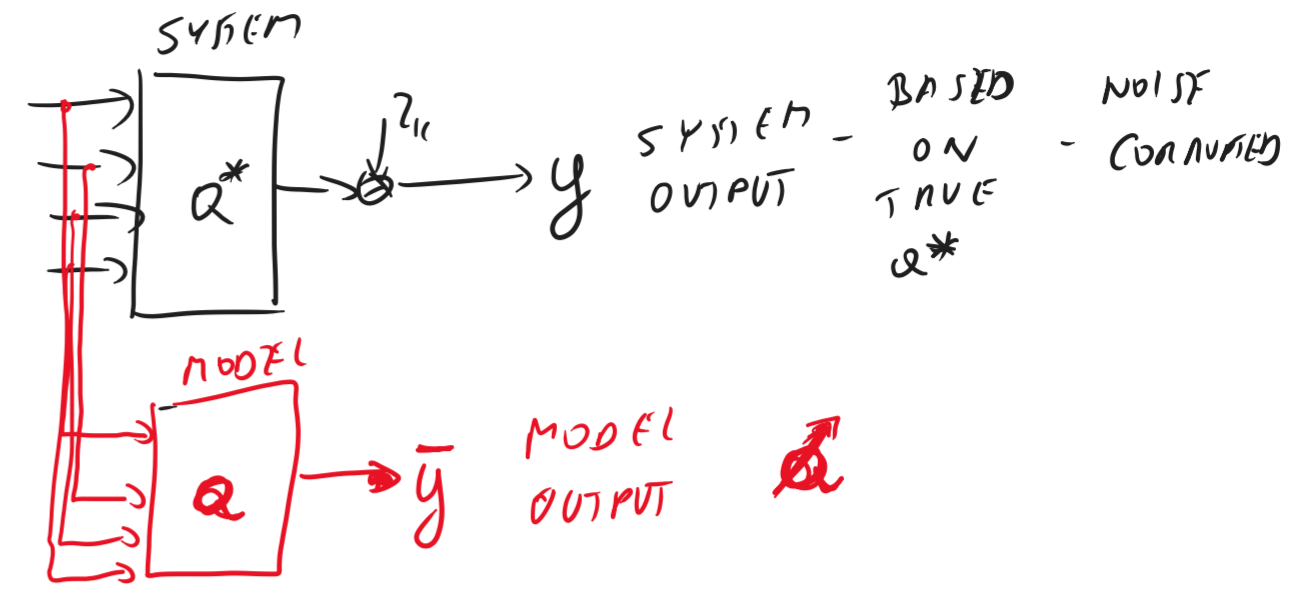 SYSTEM
Q*
y
SYSTEM OUTPUT - BASED ON TRUE Q* - NOISE CORRUPTED
MODEL
Q
ȳ
MODEL OUTPUT
Q